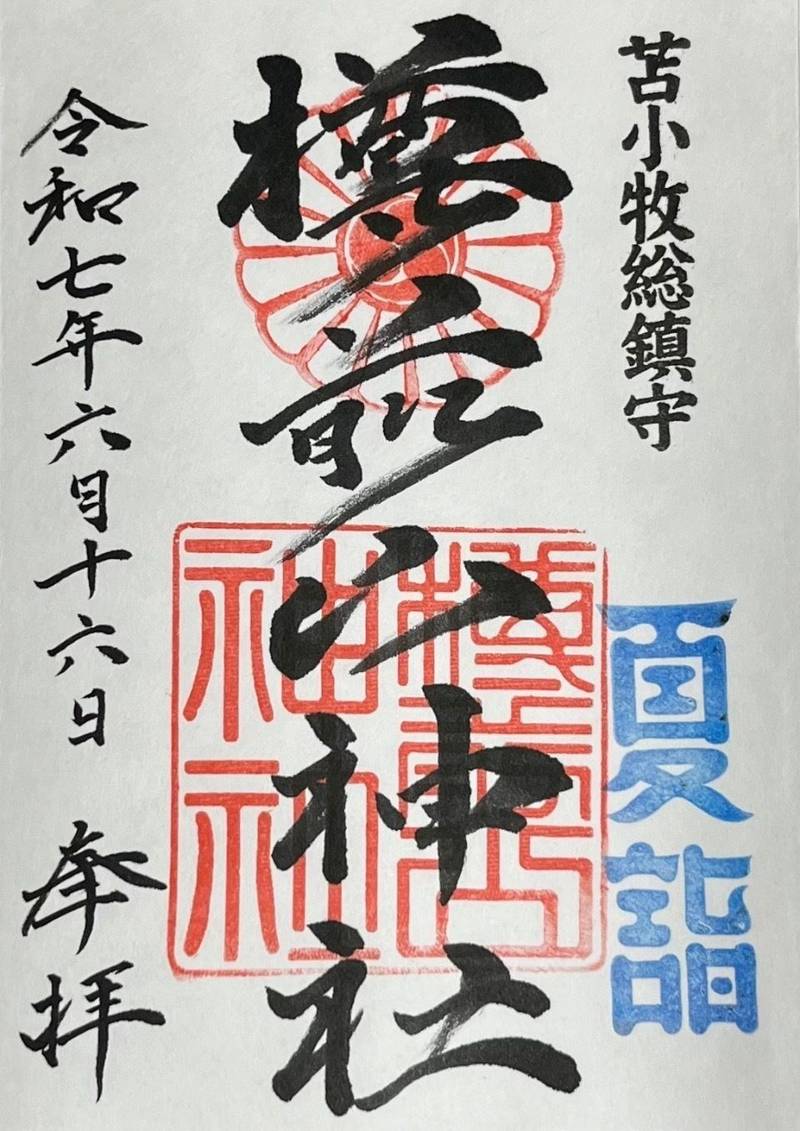 苫小牧総鎮守
夏詣
樽前山神社
樽前山神社
令和七年六月十六日 奉拝